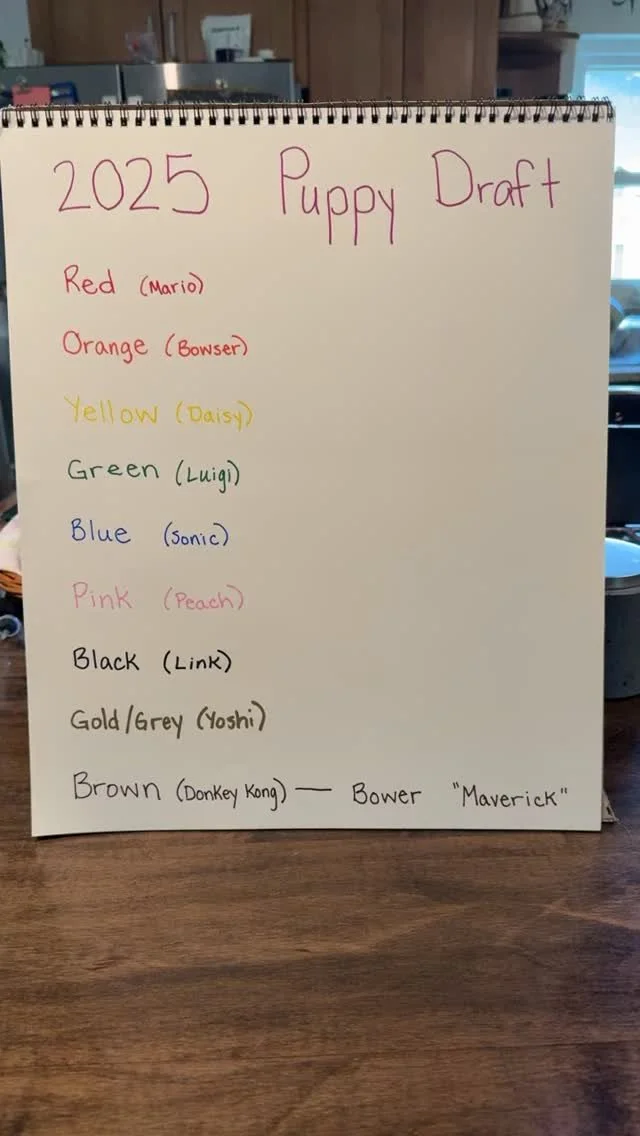 2025 Puppy Draft
Red (Mario)
Orange (Bowser)
Yellow (Daisy)
Green (Luigi)
Blue (Sonic)
Pink (Peach)
Black (Link)
Gold/Grey (Yoshi)
Brown (Donkey Kong) — Bower "Maverick"